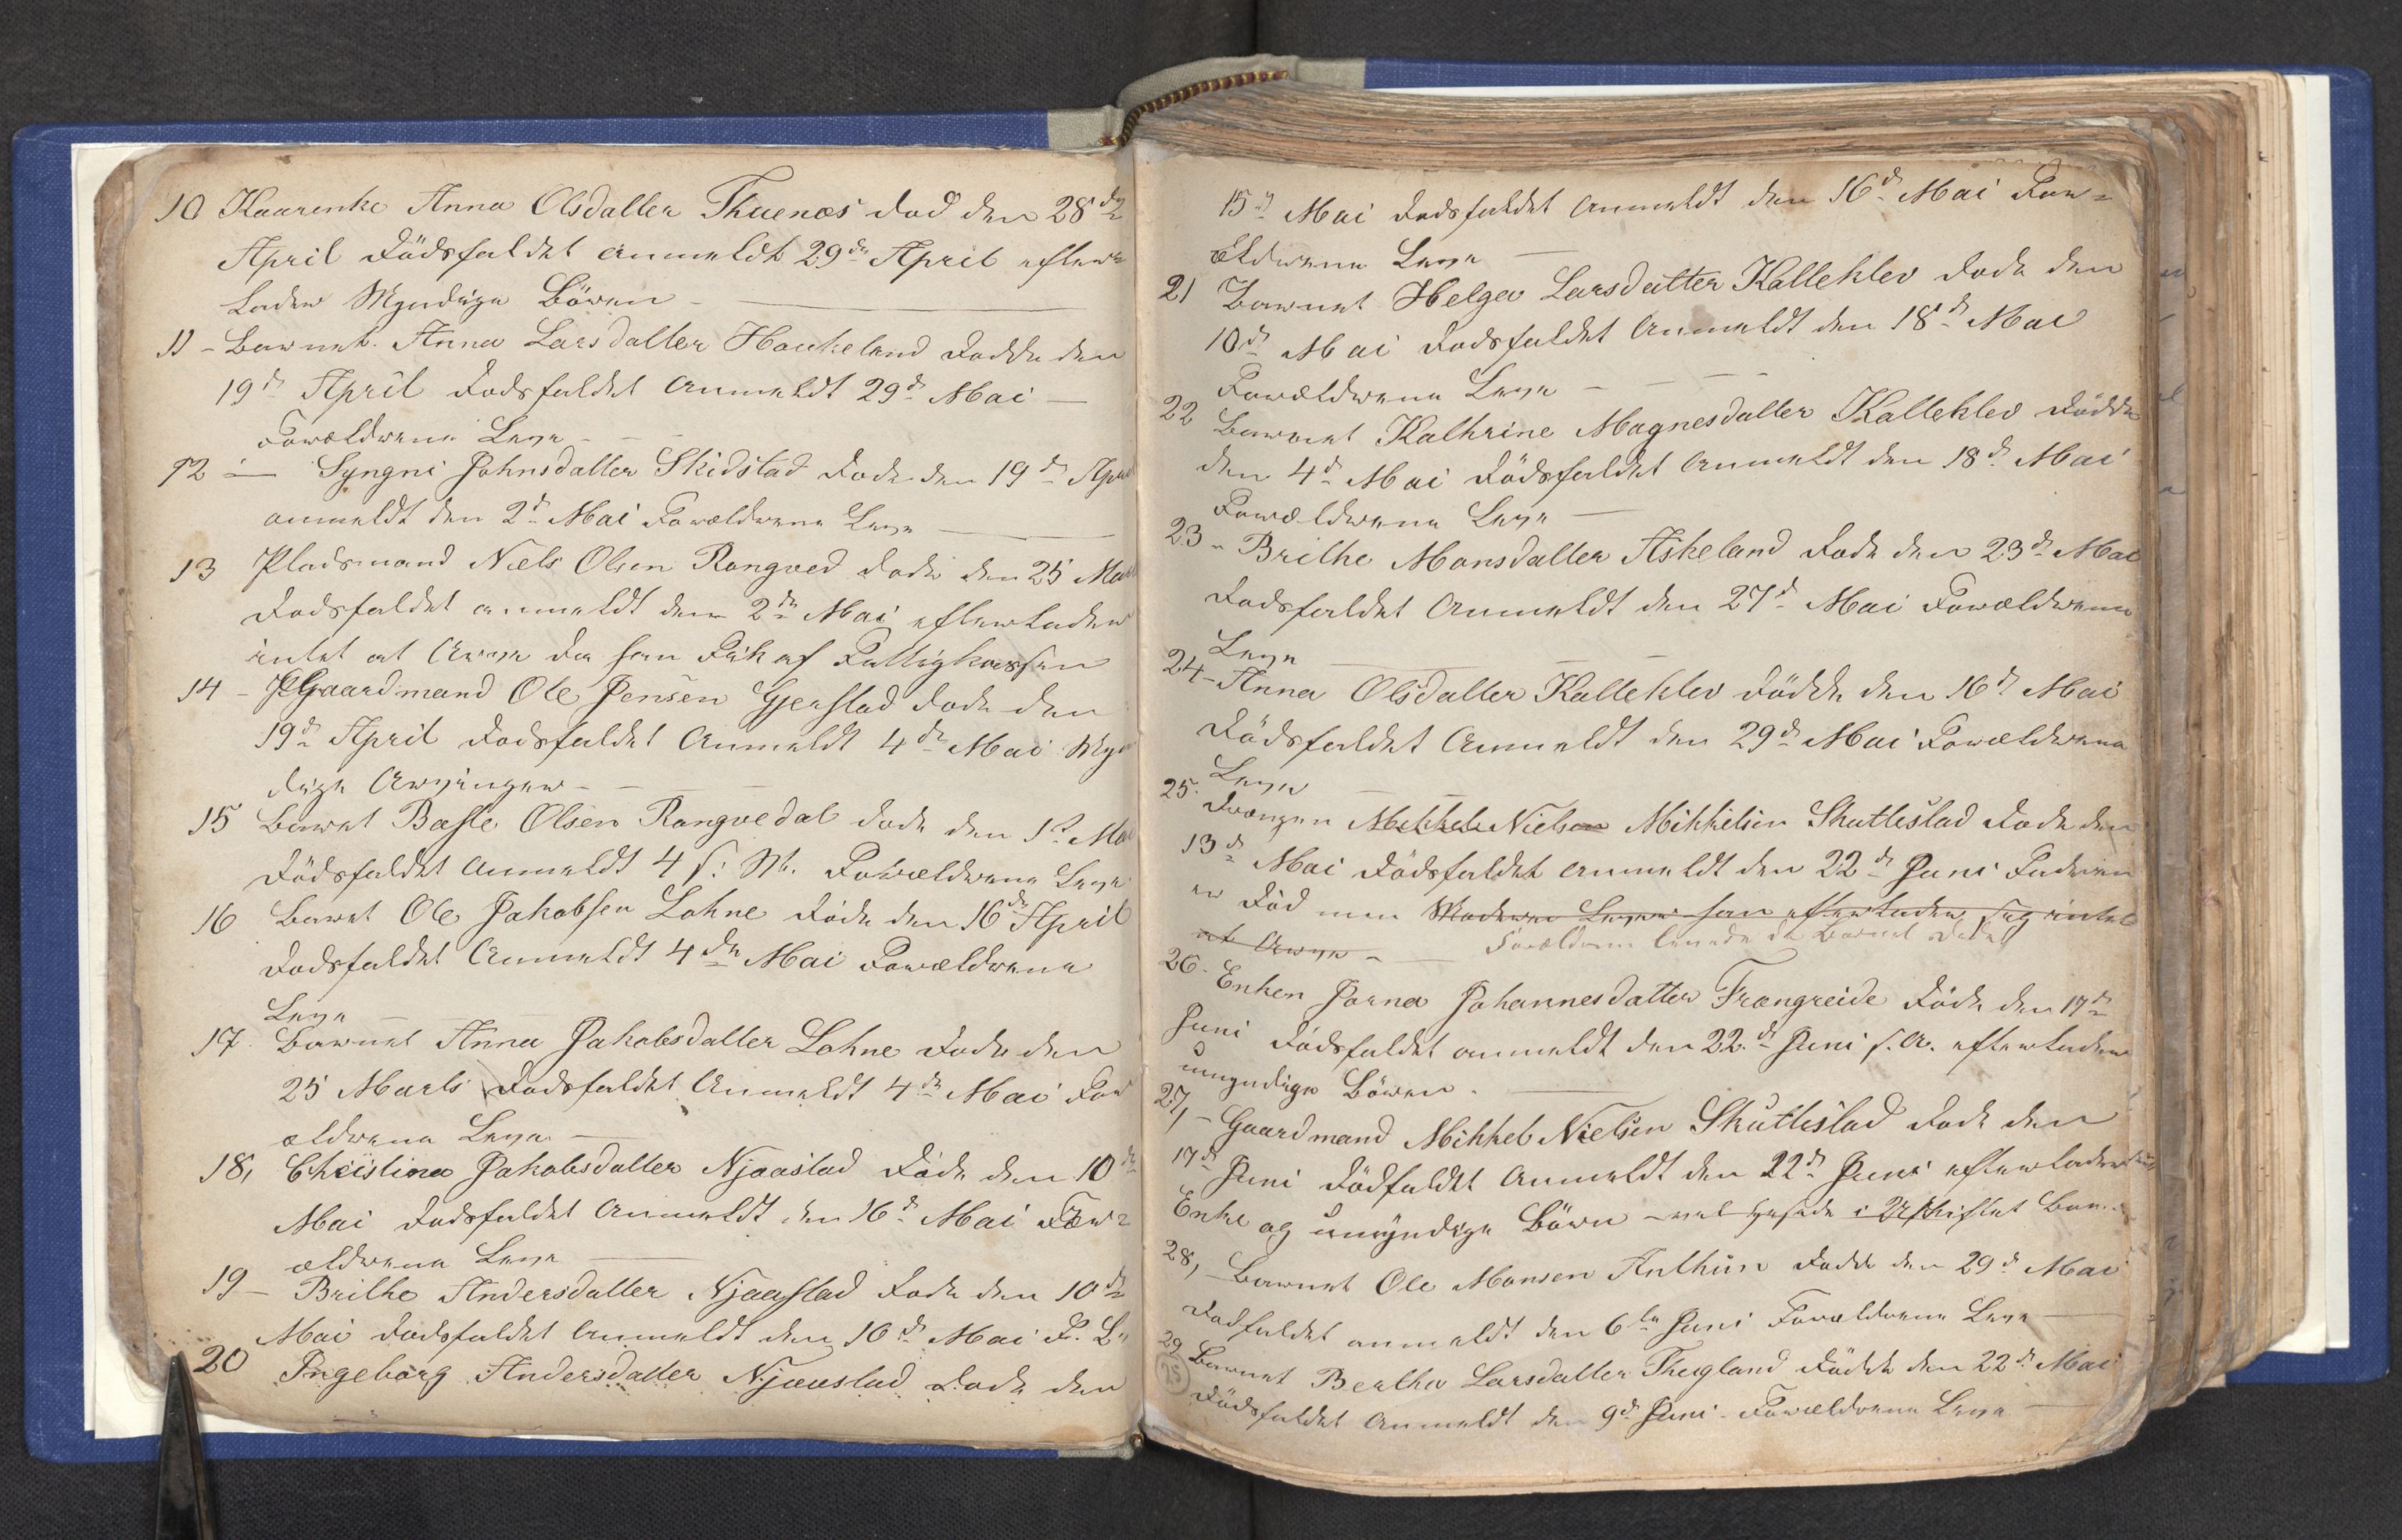 10 Kaarenke Anna Olsdatter Thuenæs död den 28de
April Dödsfaldet anmeldt 29de April efter-
lader Myndige Börn
11 - Barnet Anna Larsdatter Haukeland Dödde den
19de April Dodsfaldet Anmeldt 29de Mai —
Forældrene Leve
12 — Syngni Johnsdatter Skidstad Døde den 19de April
anmeldt den 2de Mai Forældrene Leve
13 Pladsmand Niels Olsen Rongved døde den 25 Mar
Dodsfaldet anmeldt den 2de Mai efterlader
intet at Arve da han Fik af Fattigkassen
14 - Gaardmand Ole Jensen Gjerstad døde den
19de April Dodsfaldet Anmeldt 4de Mai Myn
dige Arvinger
15 Barnet Baste Olsen Rongvedal døde den 1ste Mai
Dödsfaldet Anmeldt 4 s: M. Forældrene Leve
16 Barnet Ole Jakobsen Lohne Döde den 16de April
Dodsfaldet Anmeldt 4de Mai Forældrene
Leve
17 Barnet Anna Jakobsdatter Lohne Døde den
25 Marts Dødsfaldet Anmeldt 4de Mai For
ældrene Leve
18, Christina Jakobsdatter Njaastad Döde den 10de
Mai Dodsfaldet Anmeldt den 16de Mai For-
ældrene Leve
19 - Brithe Andersdatter Njaastad Døde den 10de
Mai Dodsfaldet Anmeldt den 16de Mai F. L.
20 Ingeborg Andersdatter Njaastad Døde den
15de Mai Dødsfaldet Anmeldt den 16de Mai For-
ældrene Leve
21 Barnet Helga Larsdatter Kalleklev døde den
10de Mai Dodsfaldet Anmeldt den 18de Mai
Forældrene Leve
22 Barnet Kathrine Magnesdatter Kalleklev Dödde
den 4de Mai Dödsfaldet Anmeldt den 18de Mai
Forældrene Leve
23 - Brithe Monsdatter Askeland Døde den 23de Mai
Dodsfaldet Anmeldt den 27de Mai Forældrene
Leve
24 - Anna Olsdatter Kalleklev Dödde den 16de Mai
Dödsfaldet Anmeldt den 29de Mai Forældrene
Leve
25. Drængen Mikkel Nielsen Mikkelsen Skutlestad Døde den
13de Mai Dödsfaldet anmeldt den 22de Juni Faderen
er Död men Moderen Lever han efterlader sig intet
at Arve - Forældrene levede da Barnet døde
26. Enken Jorna Johannesdatter Frøngreide Döde den 17de
Juni Dödsfaldet anmeldt den 22de Juni s. A. efterlader
umyndige Börn.
27, - Gaardmand Mikkel Nielsen Skutlestad døde den
17de Juni Dödfaldet Anmeldt den 22de Juni efterlader
Enke og umyndige Börn - i Uskiftet Bo
28, - Barnet Ole Monsen Anthun Dødde den 29de Mai
Dodfaldet anmeldt den 6te Juni Forældrene Leve
29 Barnet Bertha Larsdatter Thugland Dödde den 22de Mai
75
Dödsfaldet Anmeldt den 9de Juni - Forældrene Leve